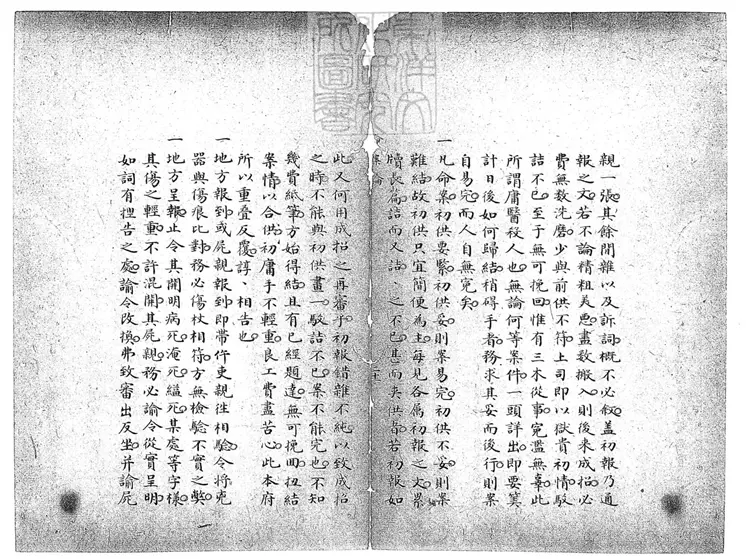 親一張其餘閒雜以及訴詞概不必敘蓋初報乃通
報之文若不論精粗美惡盡數搬入則後來成招必
費無數洗磨少與前供不符上司即以獄貴初情駁
詰不已至于無可挽回惟有三木從事冤濫無辜此
所謂庸醫殺人也無論何等案件一頭詳出即要算
計日後如何歸結稍碍手者務求其妥而後行則案
自易完而人自無冤矣
一凡命案初供要緊初供妥則案易完初供不妥則案
難結故初供只宜簡便為主每見各属初報之文累
牘長篇詰而又詰之不已甚而夾供者若初報如
此又何用成招之再審乎初報錯雜不純以致成招
之時不能與初供畫一駁詰不已案不能完也不知
幾費紙筆方始得結且有已經題達無可挽回扭結
案情以合供初庸手不輕重良工費盡苦心此本府
所以重叠反覆諄相告也
一地方報到或屍親報到即帶仵吏親往相驗令將兇
器與傷痕比對務必傷杖相符方無檢驗不實之弊
一地方呈報止令其開明病死淹死縊死某處等字樣
其傷之輕重不許混開其屍親務必諭令從實呈明
如詞有捏告之處諭令改換弗致審出反坐并諭屍